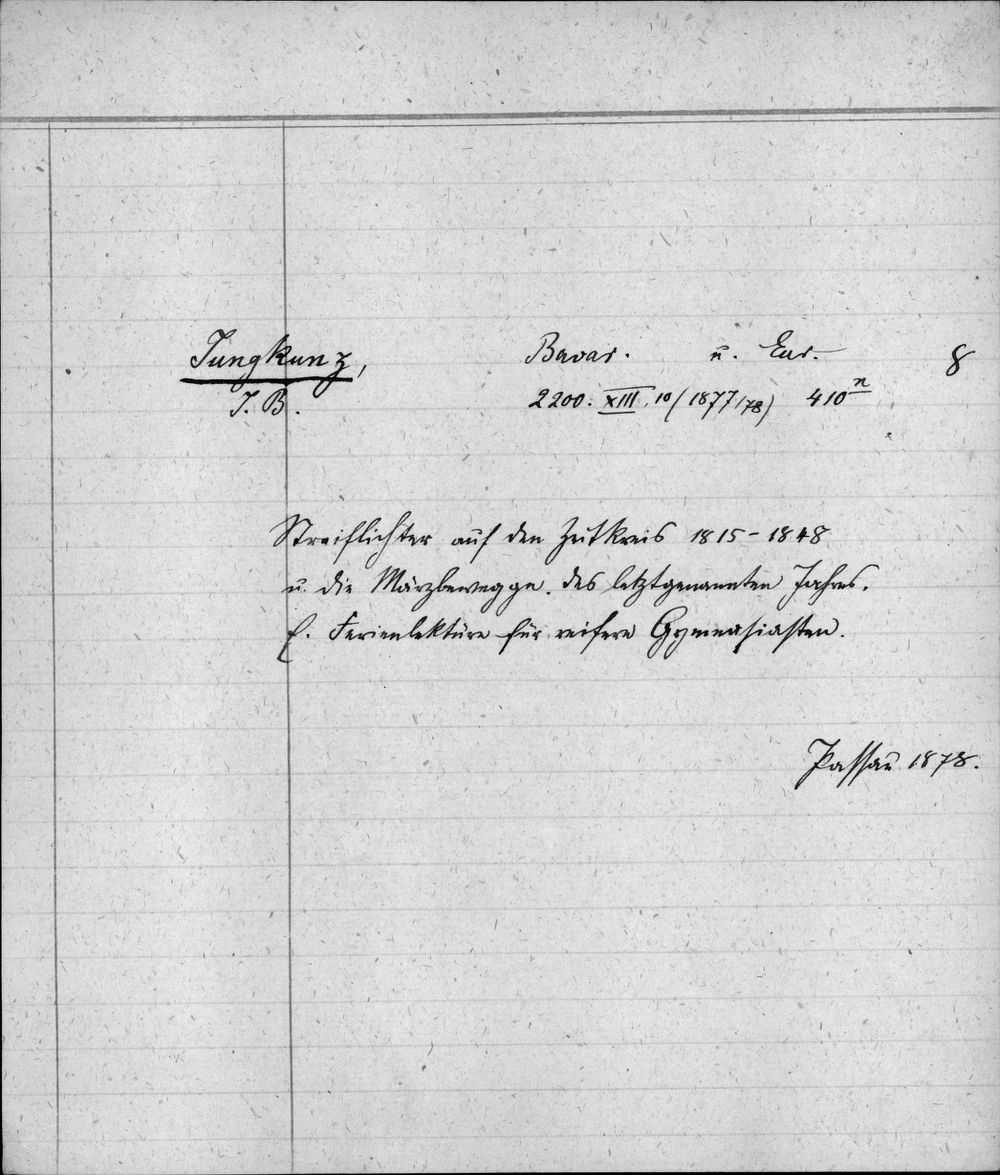 Jungkunz, Bavar. u. Eur. 8
J. B. 2200. XIII. 10 (1877/78) 410ⁿ
Streiflichter auf den Zeitkreis 1815-1848
u. die Märzbewegge. des letztgenannten Jahres.
E. Ferienlektüre für reifere Gymnasiasten.
Passau 1878.